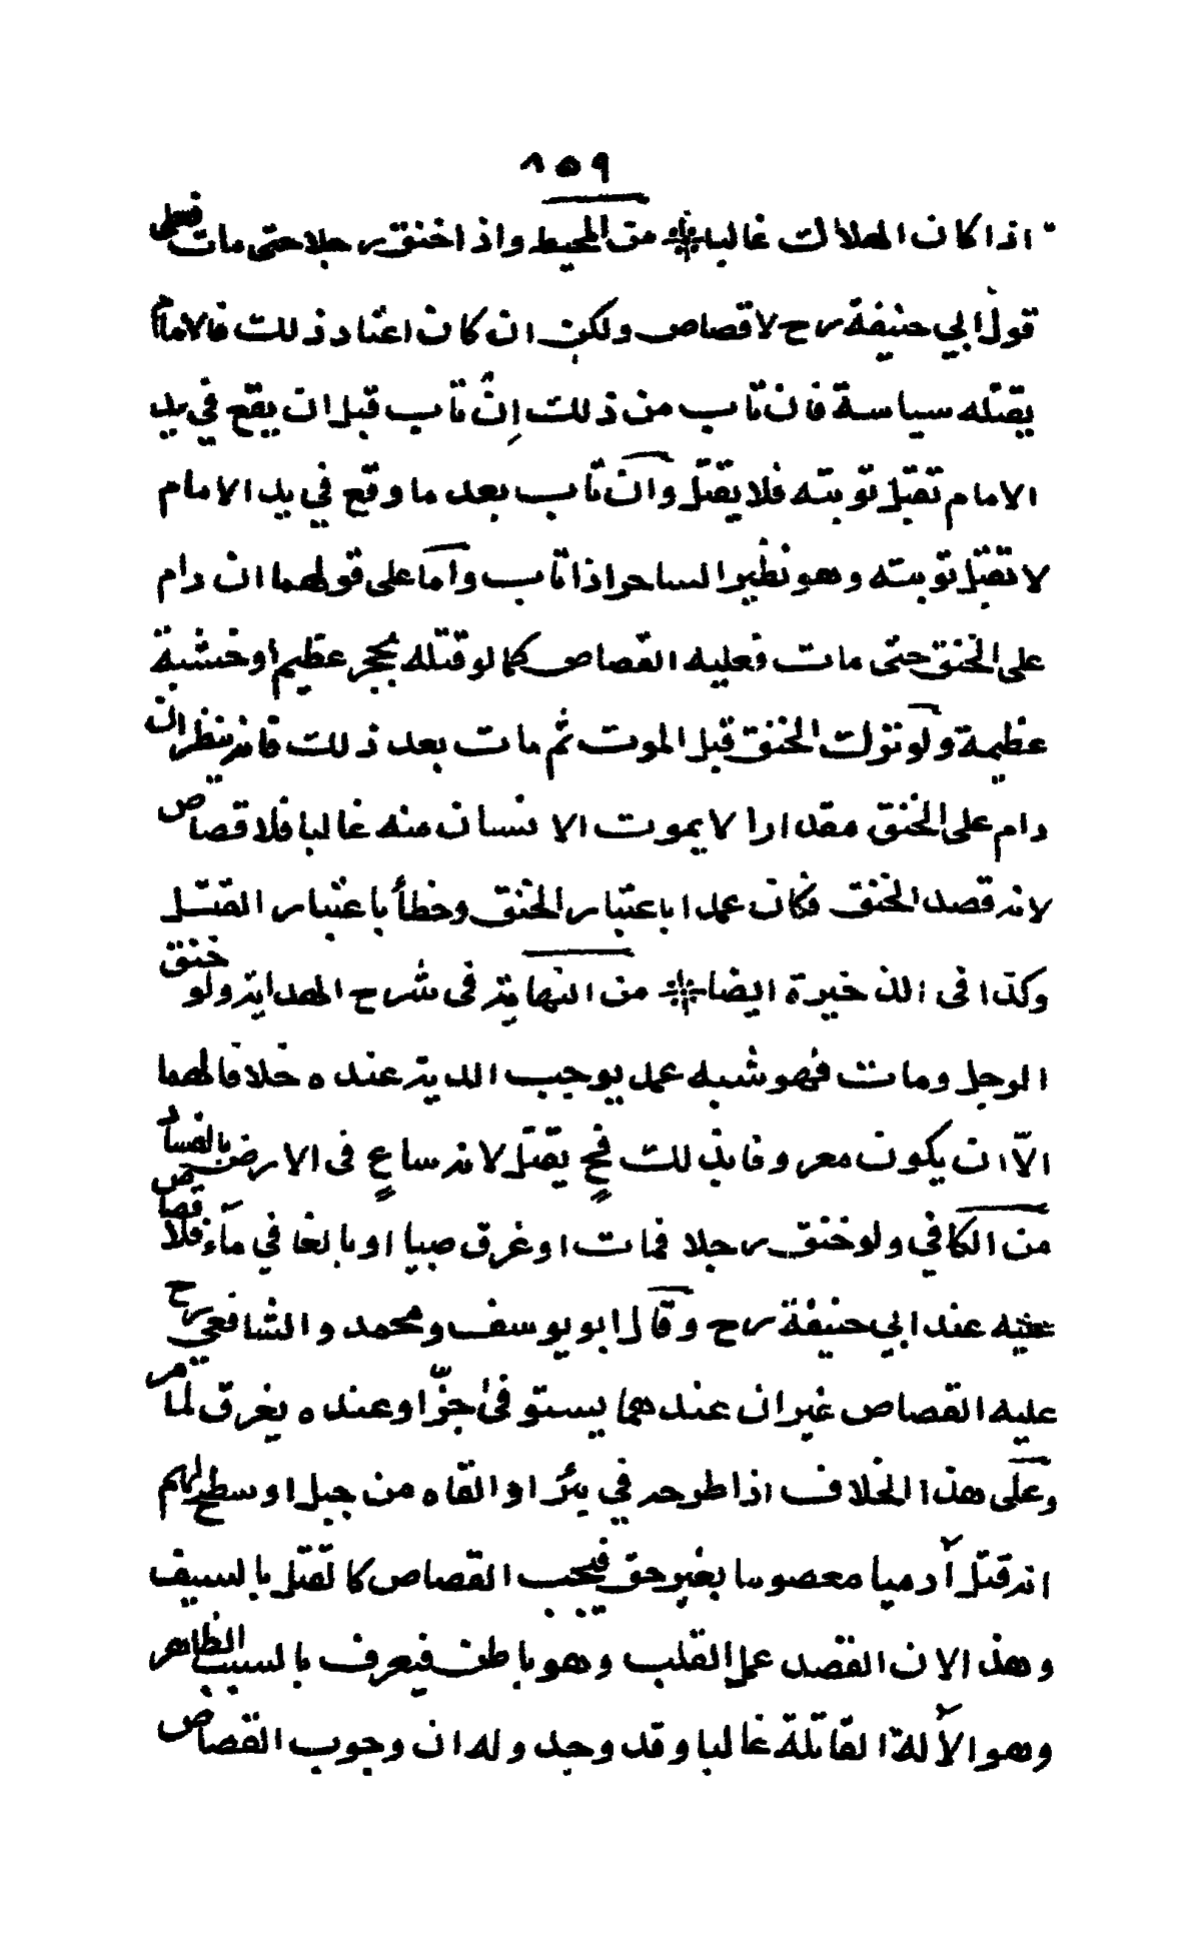 ٨٥٩
اذا كان الهلاك غالبا من المحيط واذا خنق رجلا حتى مات فعلى
قول ابي حنيفة رح لا قصاص ولكن ان كان اعتاد ذلك فالامام
يقتله سياسة فان تاب من ذلك اِنْ تاب قبل ان يقع في يد
الامام تقبل توبته فلا يقتل وان تاب بعد ما وقع في يد الامام
لا تقبل توبته وهو نظير الساحر اذا تاب واما على قولهما ان دام
على الخنق حتى مات فعليه القصاص كما لو قتله بحجر عظيم او خشبة
عظيمة ولو ترك الخنق قبل الموت ثم مات بعد ذلك فانه ينظر ان
دام على الخنق مقدارا لا يموت الانسان منه غالبا فلا قصاص
لانه قصد الخنق فكان عمدا باعتبار الخنق وخطأ باعتبار القتل
وكذا فى الذخيرة ايضا من النهاية فى شرح الهداية ولو خنق
الرجل ومات فهو شبه عمد يوجب الدية عنده خلافا لهما
الّا ان يكون معروفا بذلك فحٍ يقتل لانه ساعٍ فى الارض بالفساد
من الكافي ولو خنق رجلا فمات او غرق صبيا او بالغا في مآء فلا قصاص
عليه عند ابي حنيفة رح وقال ابو يوسف ومحمد والشافعي رح
عليه القصاص غير ان عندهما يستوفىٰ جزّا وعنده يغرق لما مر
وعلى هذا الخلاف اذا طرحه في بئر او القاه من جبل او سطح لهم
انه قتل آدميا معصوما بغير حق فيجب القصاص كالقتل بالسيف
وهذا لان القصد عمل القلب وهو باطن فيعرف بالسبب الظاهر
وهو الآلة القاتلة غالبا وقد وجد وله ان وجوب القصاص